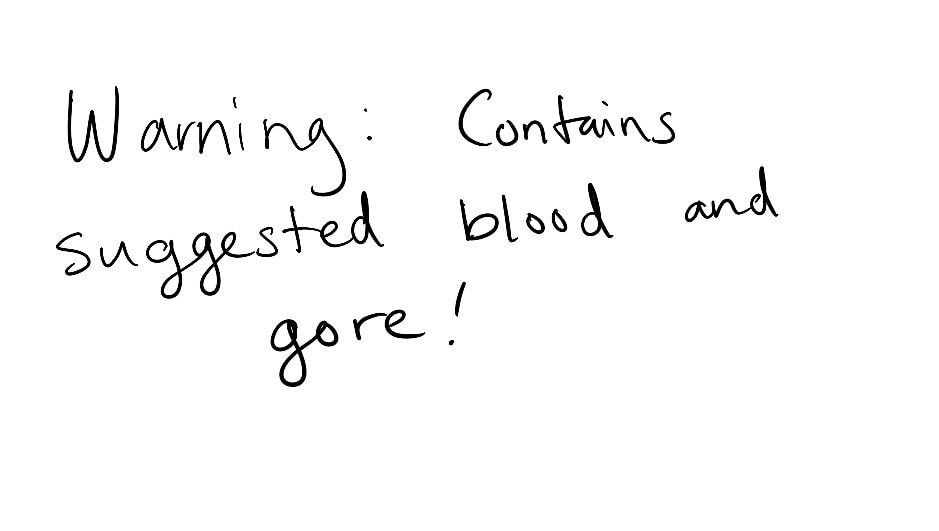 Warning: Contains
suggested blood and
gore!